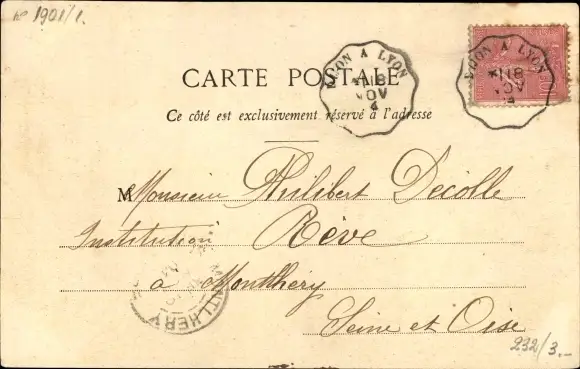 1901/1.
CARTE POSTALE
Ce côté est exclusivement réservé à l'adresse
DIJON A LYON
18
NOV
4
DIJON A LYON
18
NOV
M Monsieur Philibert Décolle
Institution Rêve
à Montlhéry
Seine et Oise
MONTLHÉRY
232/3.-